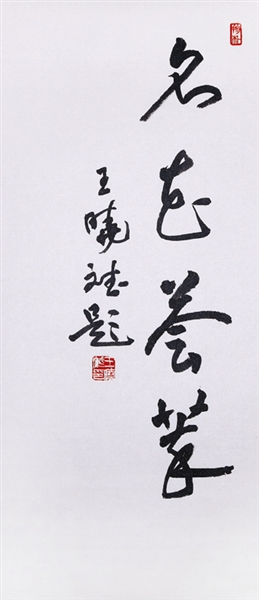 名花荟萃
王晓斌题